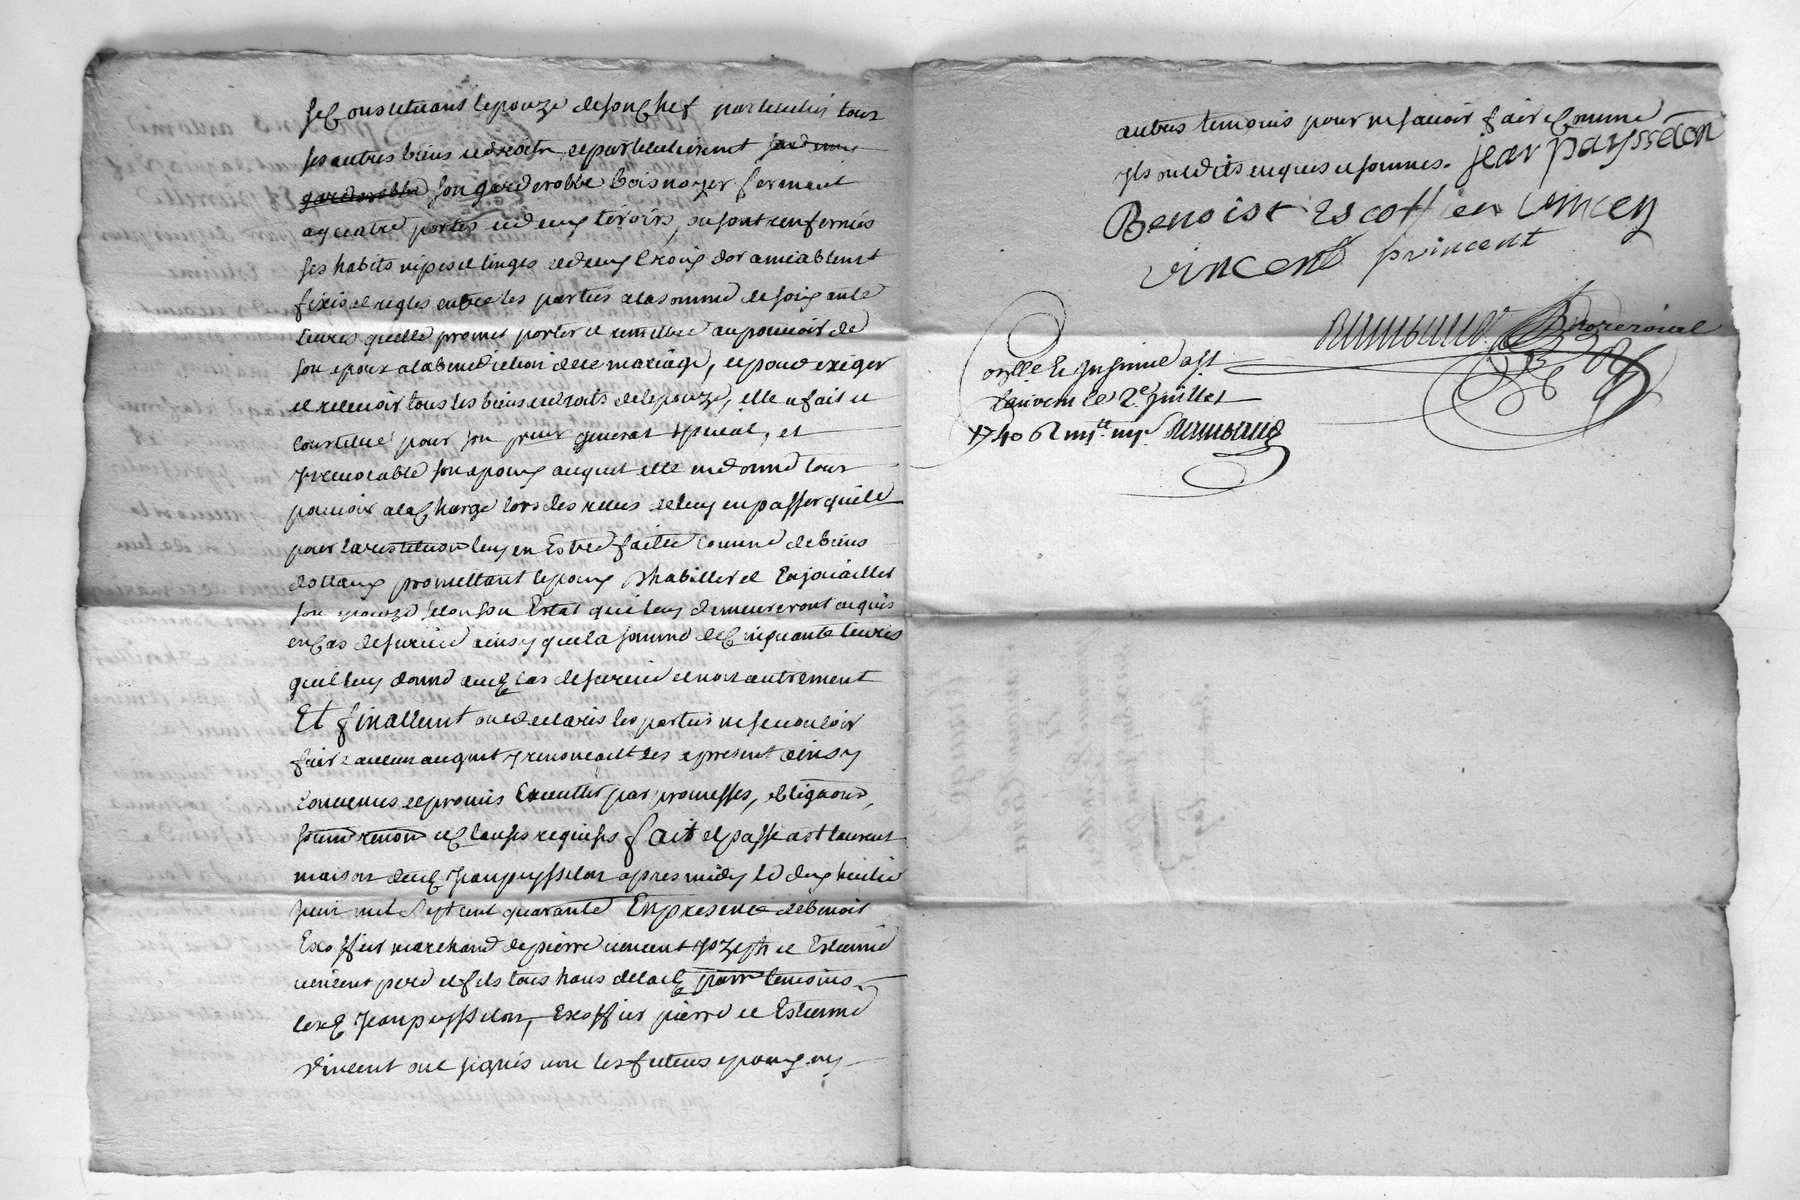 se constituant lepouze de son chef particulier tous
ses autres biens et droits, et particulierement
garderobbe son garderobbe bois noyer fermant
a quatre portes et deux tiroirs, ou sont renfermés
ses habits nipes et linges et deux croix dor amiablemt
fixés et regles entre les parties a la somme de soixante
livres quelle promet porter et remettre au pouvoir de
son epoux a la benediction de ce mariage, et pour exiger
et recevoir tous les biens et droits de lepouze, elle a fait et
constitué pour son procur general special, et
yrrevocable son epoux auquel elle en donne tout
pouvoir a la charge lors des receus de luy en passer quitte
pour la restitution luy en Estre faitte comme de biens
dottaux promettant lepoux dhabiller et Enjouailler
son epouze selon son Estat qui luy demeureront acquis
en cas de survie ainsy que la somme de cinquante livres
quil luy donne aud cas de survie et non autrement
Et finallemt ont declarés les parties ne se vouloir
faire aucun augmt y renonceant les presentes ainsy
convenues et promis Executter par promesses, obligaons,
soum renon et clauses requises fait et passé a st laurent
maison dud Jean paysselon apres midy le dix huitie
juin mil sept cent quarante En presence de benoit
Escoffier marchand de pierre vincent Jozeph et Estienne
vincent pere et fils tous habs de la d parr temoins
lesd Jean paysselon, Escoffier pierre et Estienne
vincent ont signés non les futurs epoux ny
autres temoins pour ne scavoir faire comme
yls ont dit enquis et sommés. jean paysselon
Benoist Escoffier vincen
vincent p vincent
Rambaud
Con.lle et Insinué a st
Laurent le 2e juillet
1740
Rambaud